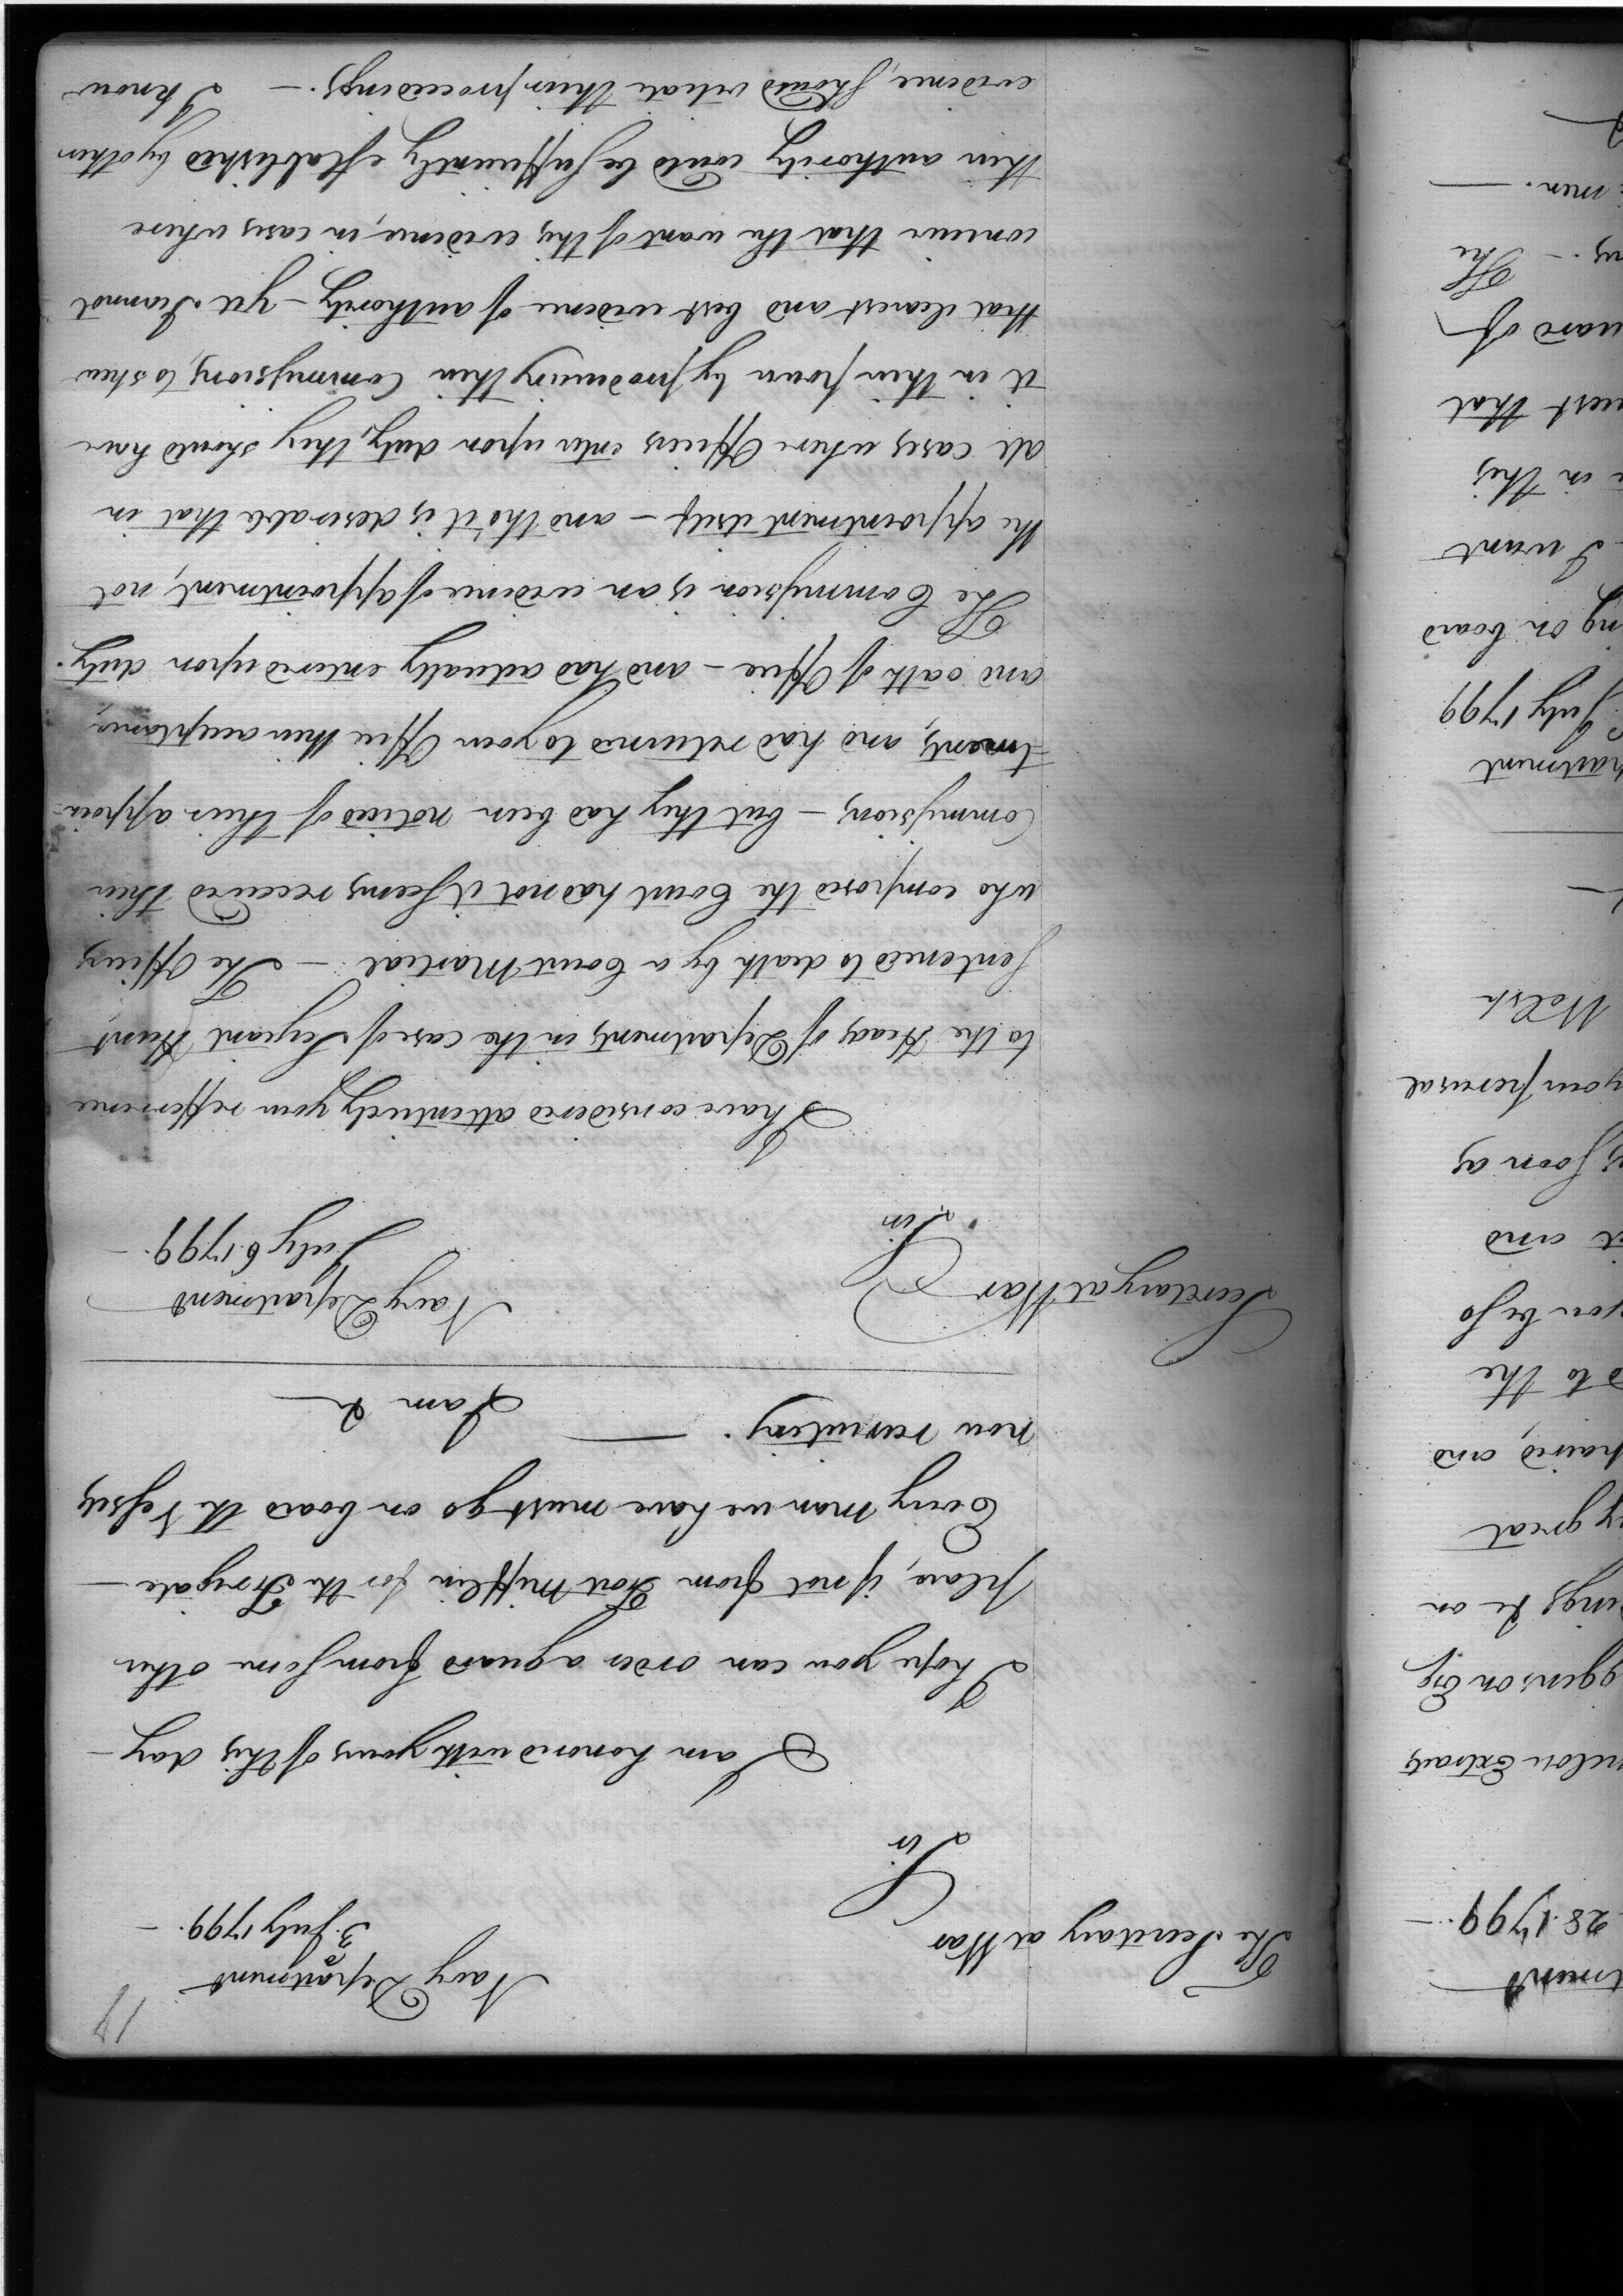 41
Navy Department
3. July 1799. —
The Secretary at War
Sir
I am honored with yours of this day —
I hope you can order a guard from some other
place, if not from Fort Mifflin for the Frigate —
Every man we have must go on board the Vessels
now recruiting. — I am &
Navy Department
July 6. 1799. —
Secretary at War
Sir
I have considered attentively your refference
to the Heads of Departments in the case of Sergeant Hunt
sentenced to death by a Court Martial — The Officers
who composed the Court had not it seems received their
Commissions — but they had been noticed of their appoin-
tments, and had returned to your Office their acceptances,
and oath of Office — and had actually entered upon duty.
The Commission is an evidence of appointment, not
the appointment itself — and tho' it is desireable that in
all cases where Officers enter upon duty, they should have
it in their power by producing their Commissions, to shew
that clearest and best evidence of authority — yet I cannot
conceive that the want of this evidence, in cases where
their authority could be sufficiently established by other
evidence, should vitiate their proceedings. — I know
tment
28. 1799. —
Extracts
on
great
and
to the
you be so
and
soon as
your perusal
Welsh
partment
July 1799
on board
I want
in this
that
of
The
men. —